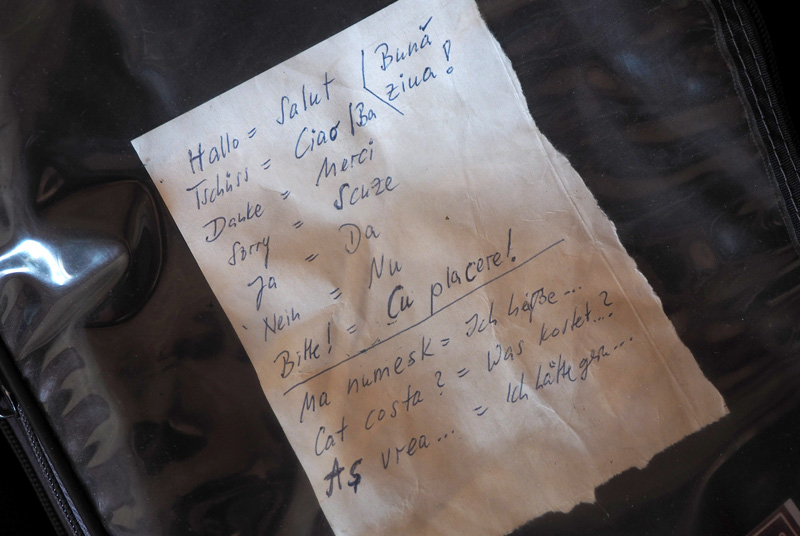 Hallo = Salut / Bună
ziua!
Tschüss = Ciao / Ba
Danke = Merci
Sorry = Scuze
Ja = Da
Nein = Nu
Bitte! = Cu placere!
Ma numesk = Ich heiße...
Cat costa? = Was kostet...?
Aş vrea... = Ich hätte gern...